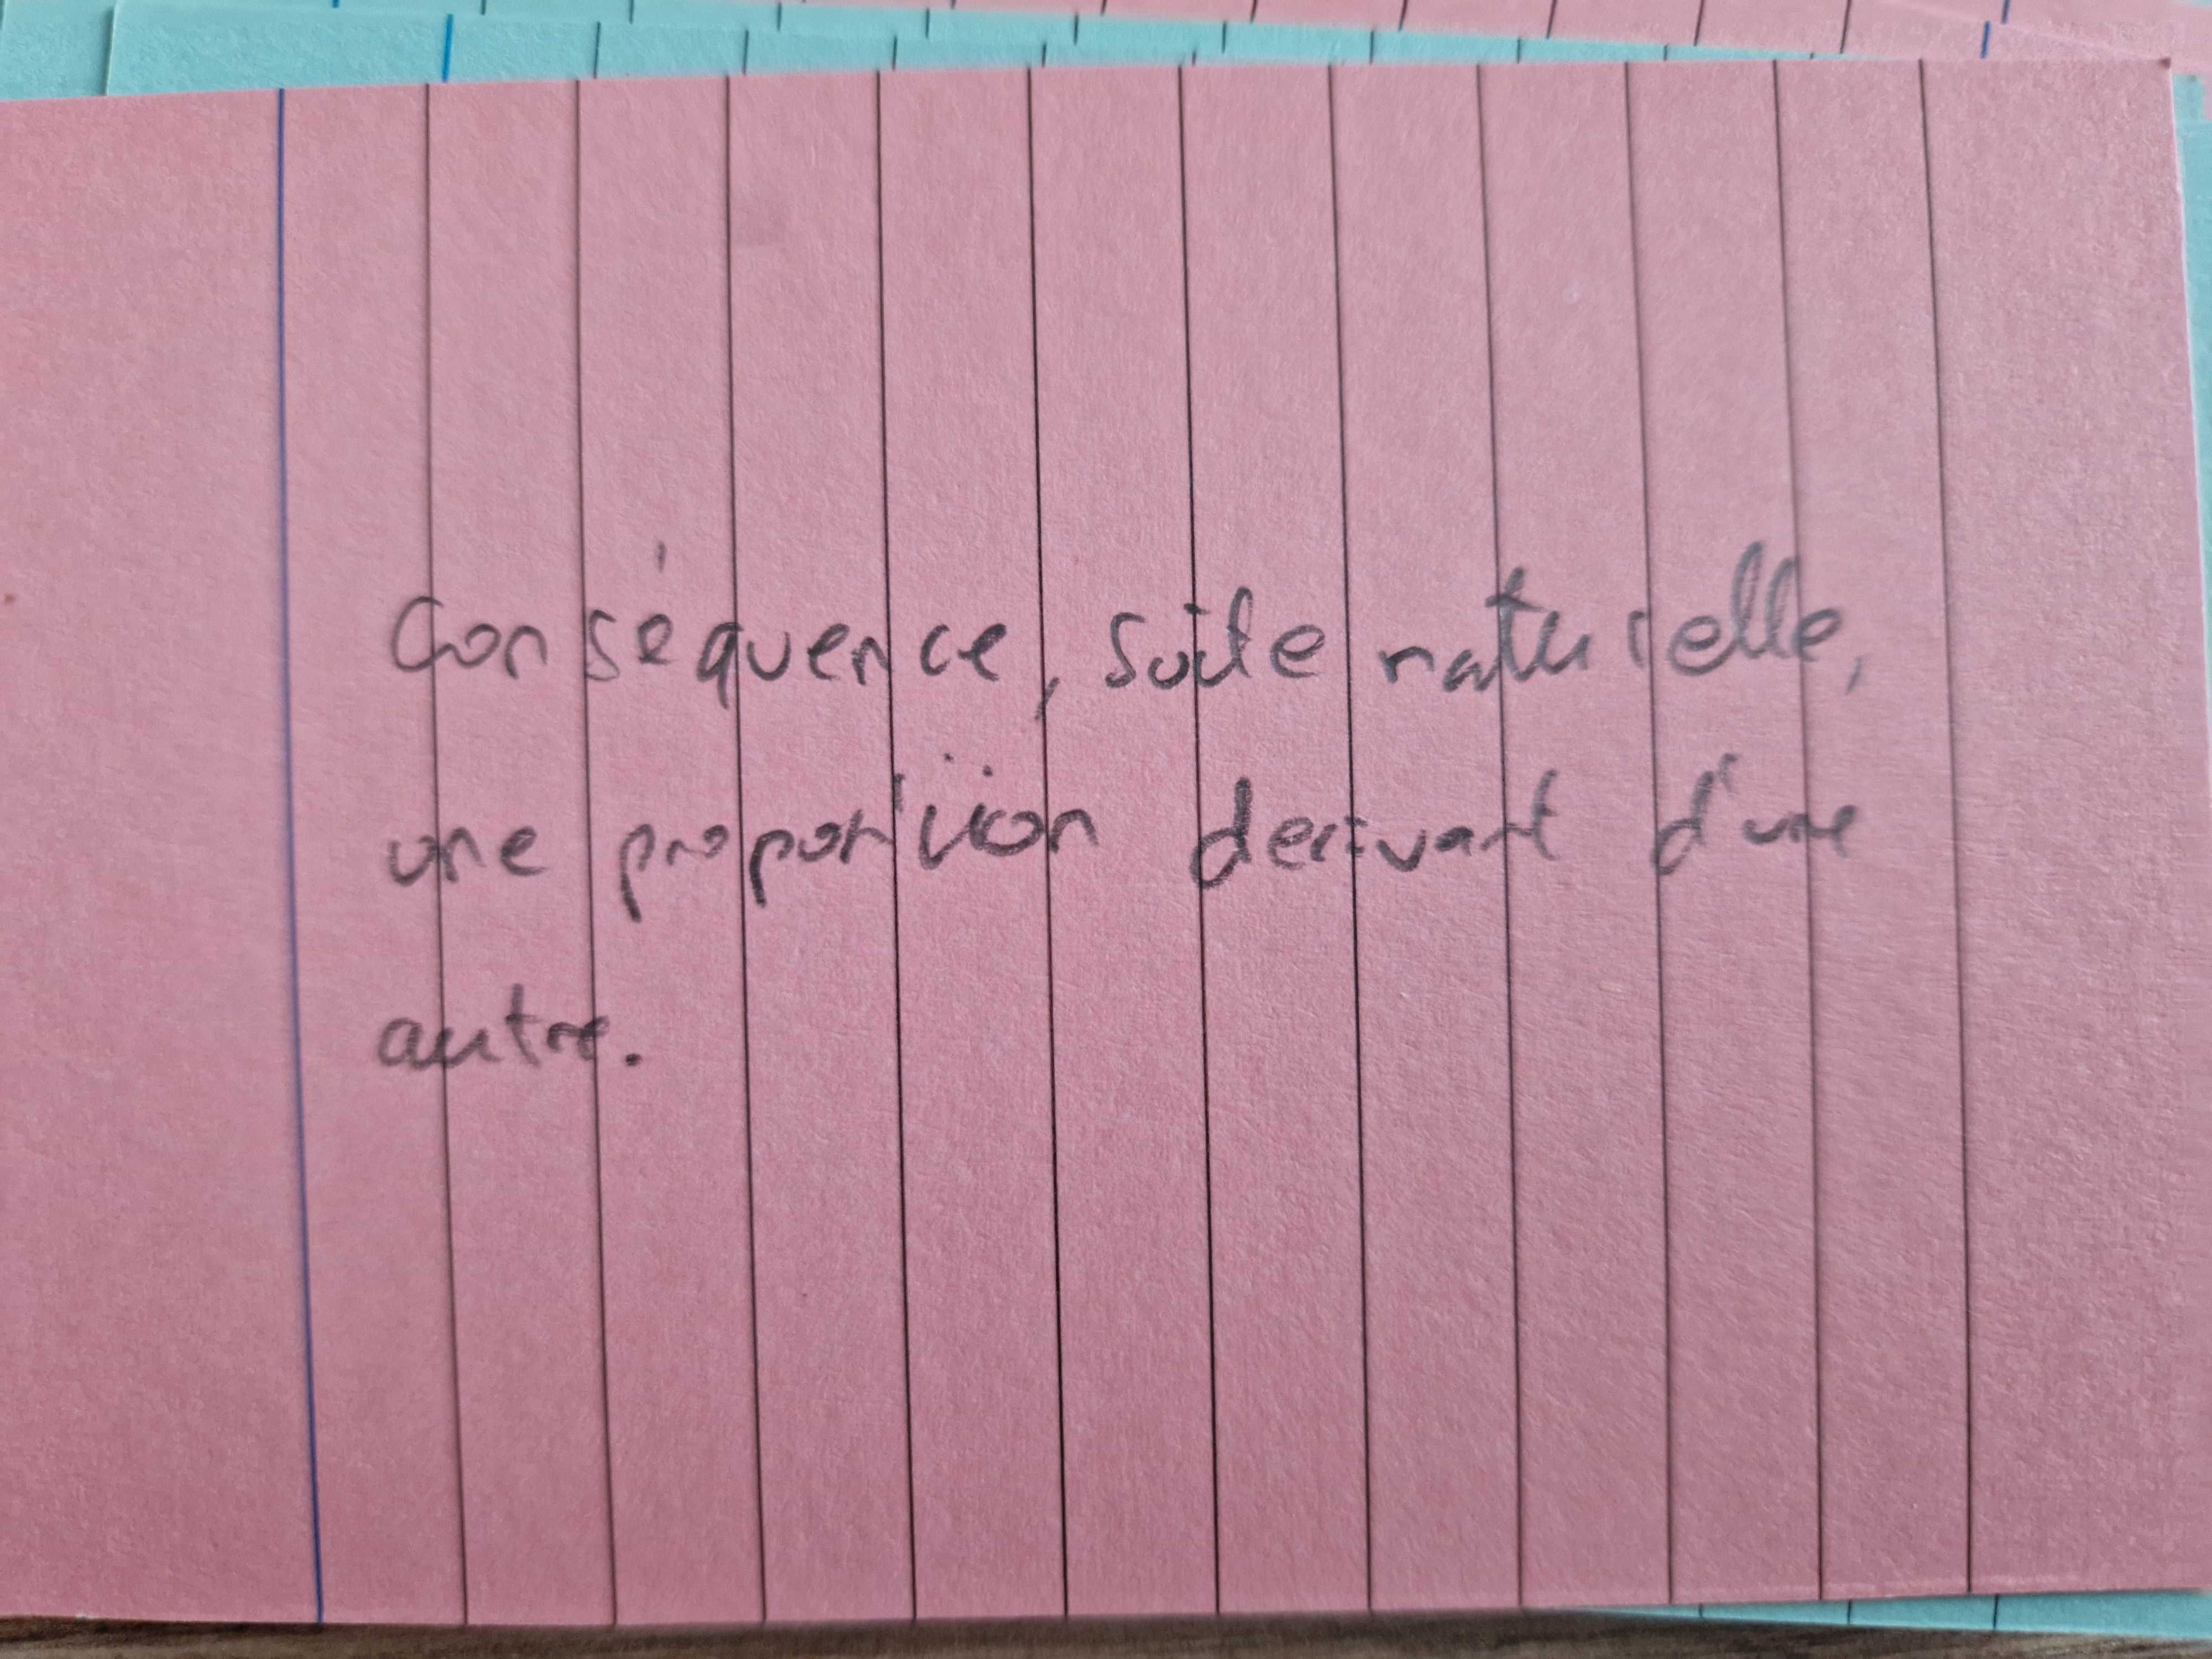 Conséquence, suite naturelle,
une proposition derivant d'une
autre.